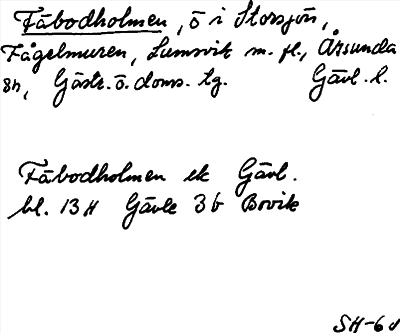 Fäbodholmen, ö i Storsjön,
Fågelmuren, Lumsvik m. fl., Årsunda
sn, Gästr. ö. doms. tg. Gävl. l.
Fäbodholmen ek Gävl.
bl. 13 H Gävle 3 b Bovik